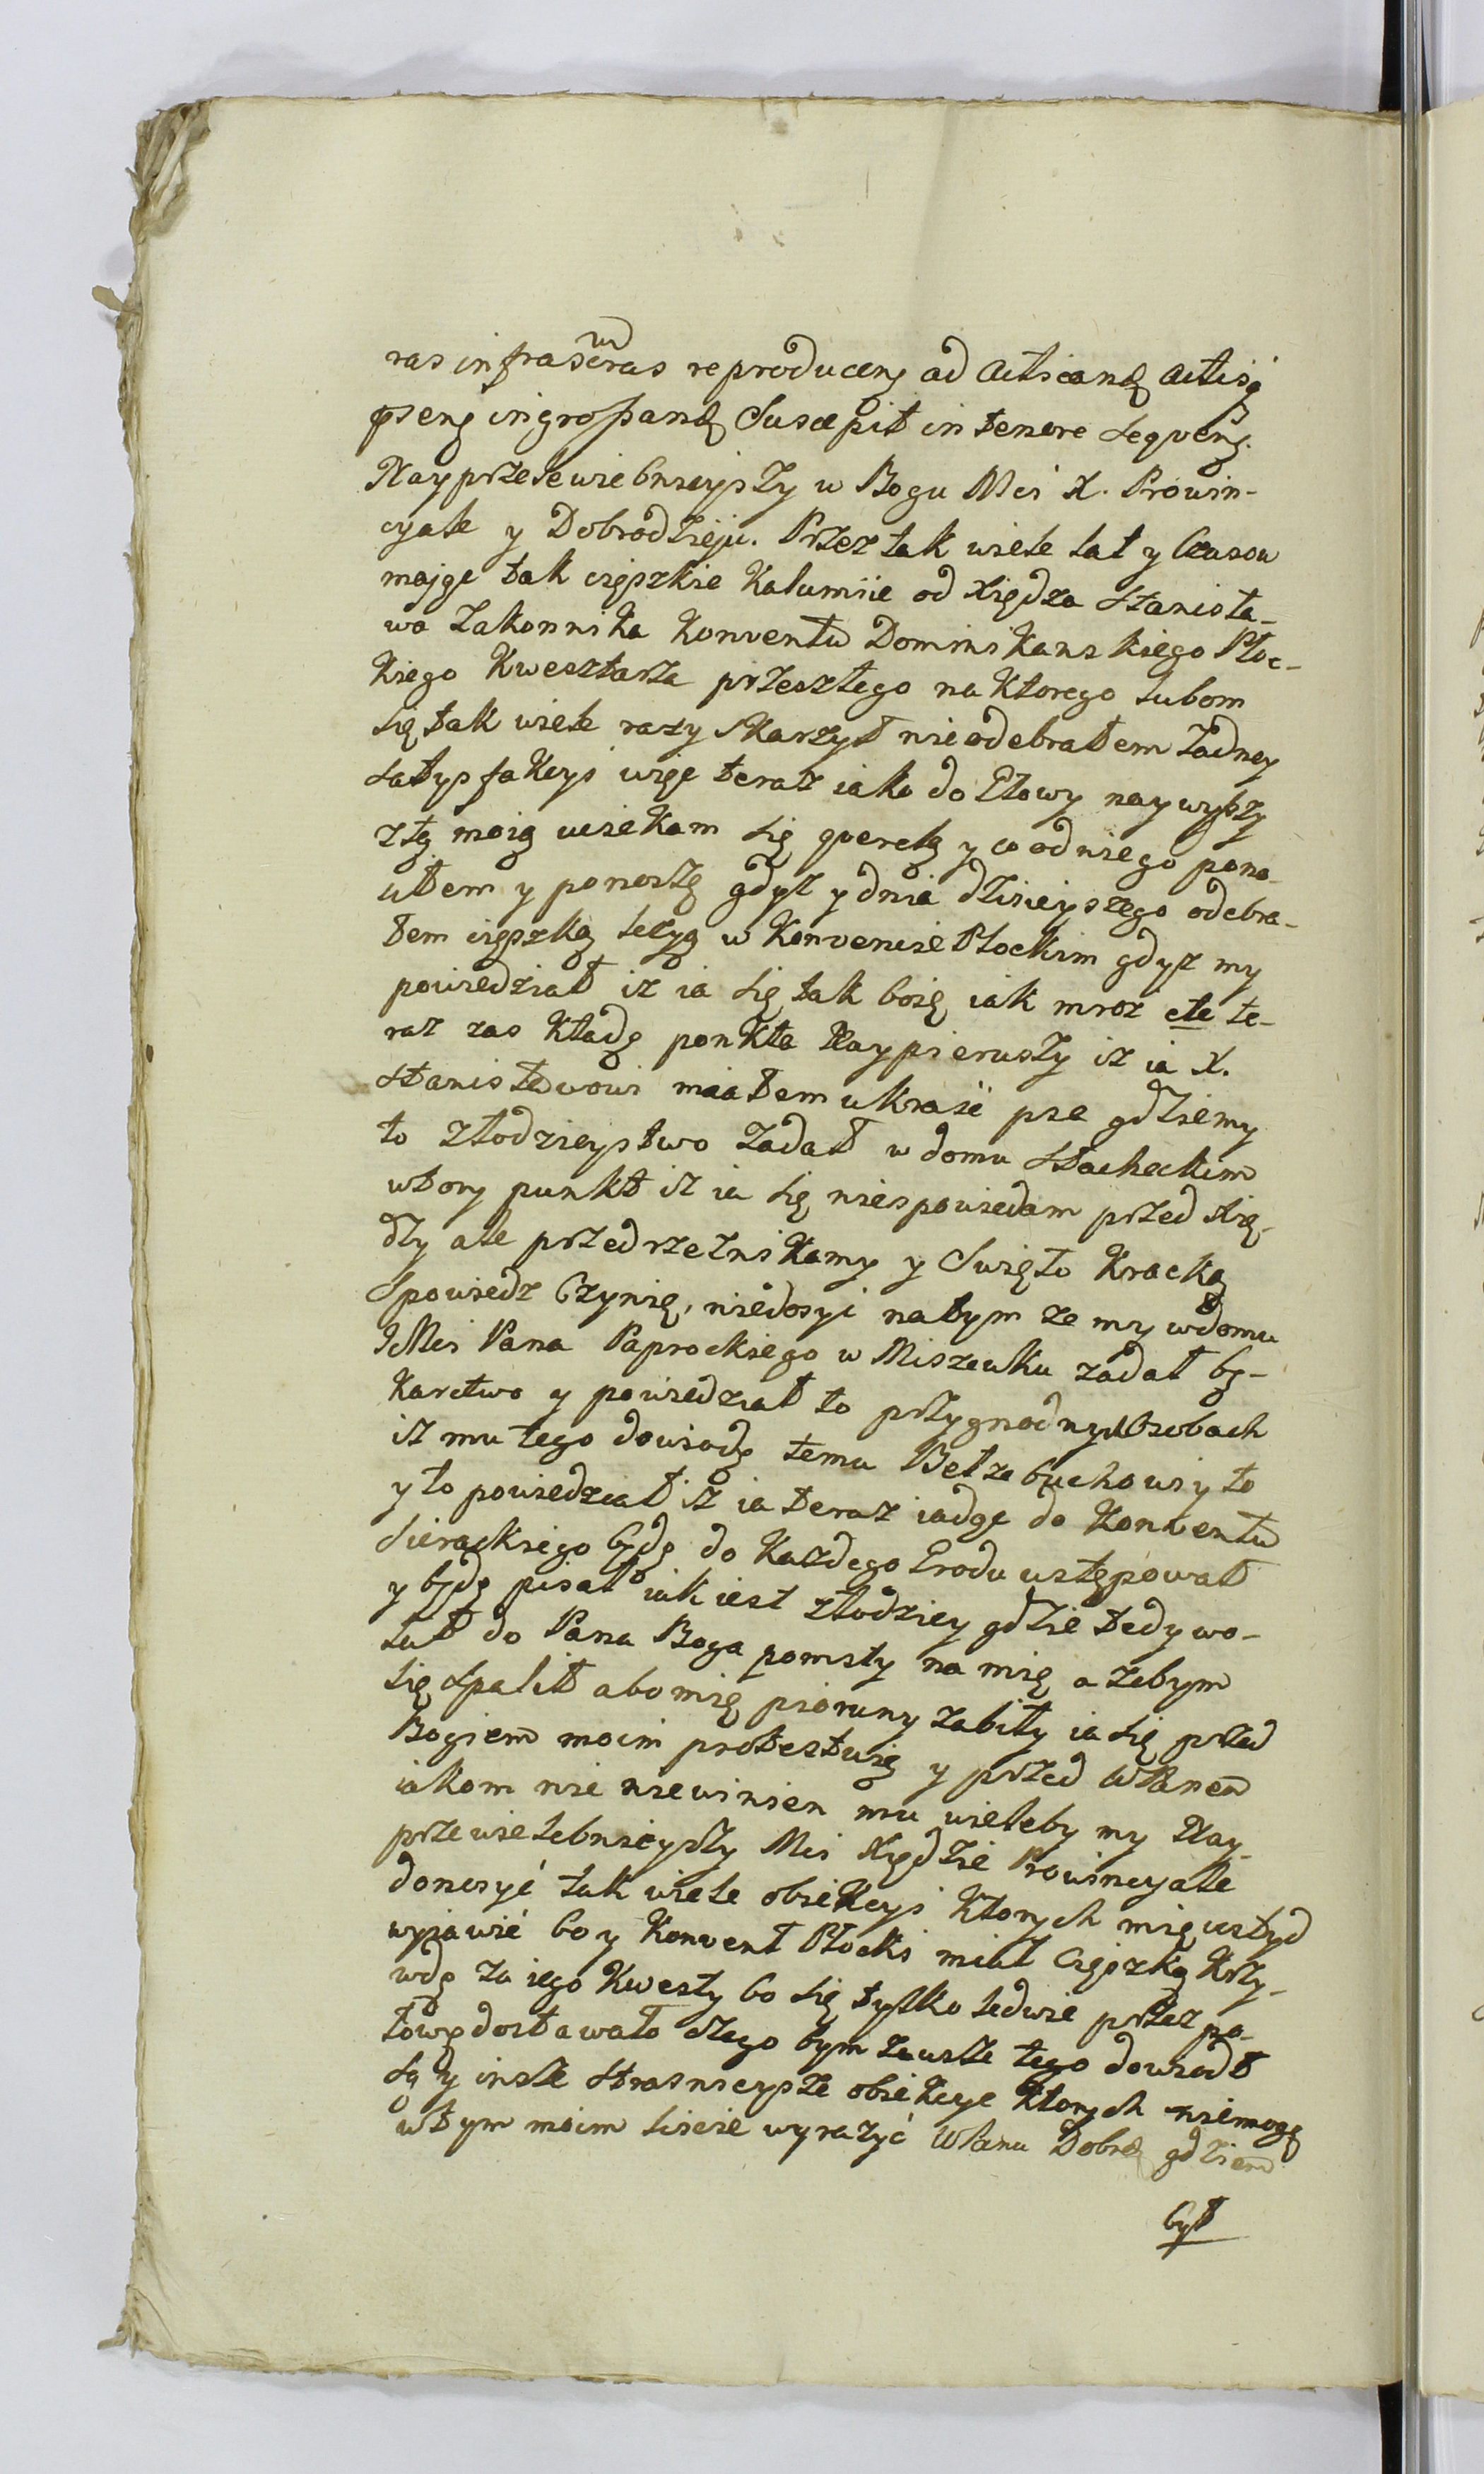 ras infrascras reproducens ad Acticand Actisq
psens ingrossand Suscepit in tenore sequens.
Nayprzelewiebnieyszy w Bogu Mci X. Prowin-
cyale y Dobrodzieju. Przez tak wiele lat y Czasow
mając tak cięszkie Kalumiie od Xiędza Stanisła-
wa Zakonnika Konventu Dominikanskiego Płoc-
kiego Kwesztarza przeszłego na ktorego lubom
się tak wiele razy skarzył nieodebrałem żadney
satysfakcyi więc teraz iako do Głowy naywyszy
z tą moią uciekam się querelą y co od niego pono-
siłem y ponoszę gdyż y dnia dzisieyszego odebra-
łem cięszką lekyą w Konwencie Płockim gdyż my
powiedział iz ia się tak boię iak mroz etc te-
raz zas kładę ponkta Naypierwszy iz ia X.
Stanisławowi miałem ukraść psa gdziemy
to złodzieystwo zadał w domu Słacheckim
wtory punkt iz ia się niespowiedam przed Xię-
dzy ale przedrzeznikamy y Swięto Kracką
Spowiedz Czynię, niedosyć natym ze my w domu
JMci Pana Paprockiego w Miszewku zadał bę-
karctwo y powiedział to przy gnodnych Osobach
iz mu tego dowiodę temu Belzebuchowi y to
y to powiedział iz ia teraz iadąc do Konventu
Sierackiego będę do Każdego Grodu wstępował
y będę pisał iak iest złodziey gdzie tedy wo-
łał do Pana Boga pomsty na mię a żebym
się spalił abo mię pioruny zabiły ia się przed
Bogiem moim protestuię y przed WPanem
iakom nie niewinien mu wieleby my Nay-
przewielebnieyszy Mci Xiędzie Prowincyale
donosyć tak wiele obiekcyi ktorych mię wstyd
wyiawić bo y Konvent Płocki miał Cięszką krzy-
wdę za iego Kwesty bo się tylko ledwie przez po-
łowę dostawało czego bym zawsze tego dowiodł
są y insze strasnieysze obiekcye ktorych niemogę
w tym moim liscie wyrazyć WPanu Dobrd gdziem
był